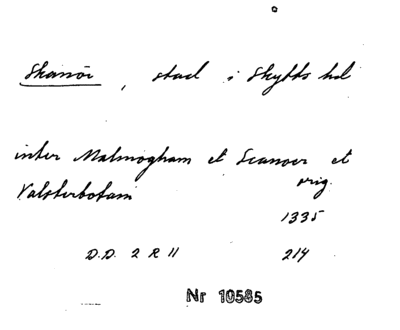 Skanör, stad i Skytts hd
inter Malmogham et Scanoer et
Valsterbotam orig.
1335
D.D. 2 R 11 214
Nr 10585